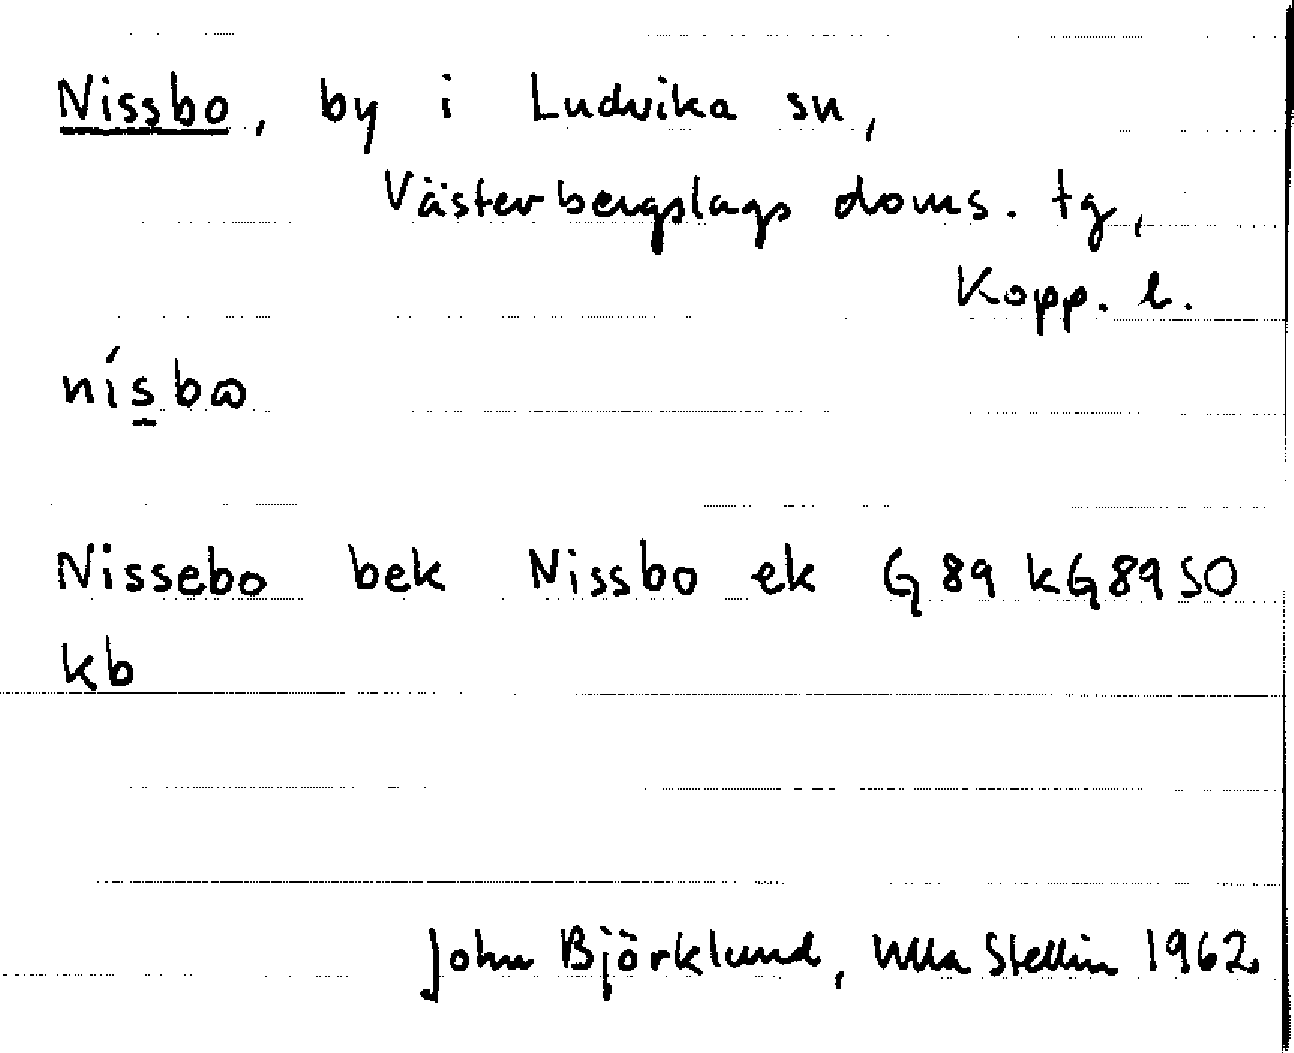 Nissbo, by i Ludvika sn,
Västerbergslags doms. tg,
Kopp. l.
nísbɷ
Nissebo bek Nissbo ek G89 kG89SO
kb
John Björklund, Ulla Stellin 1962